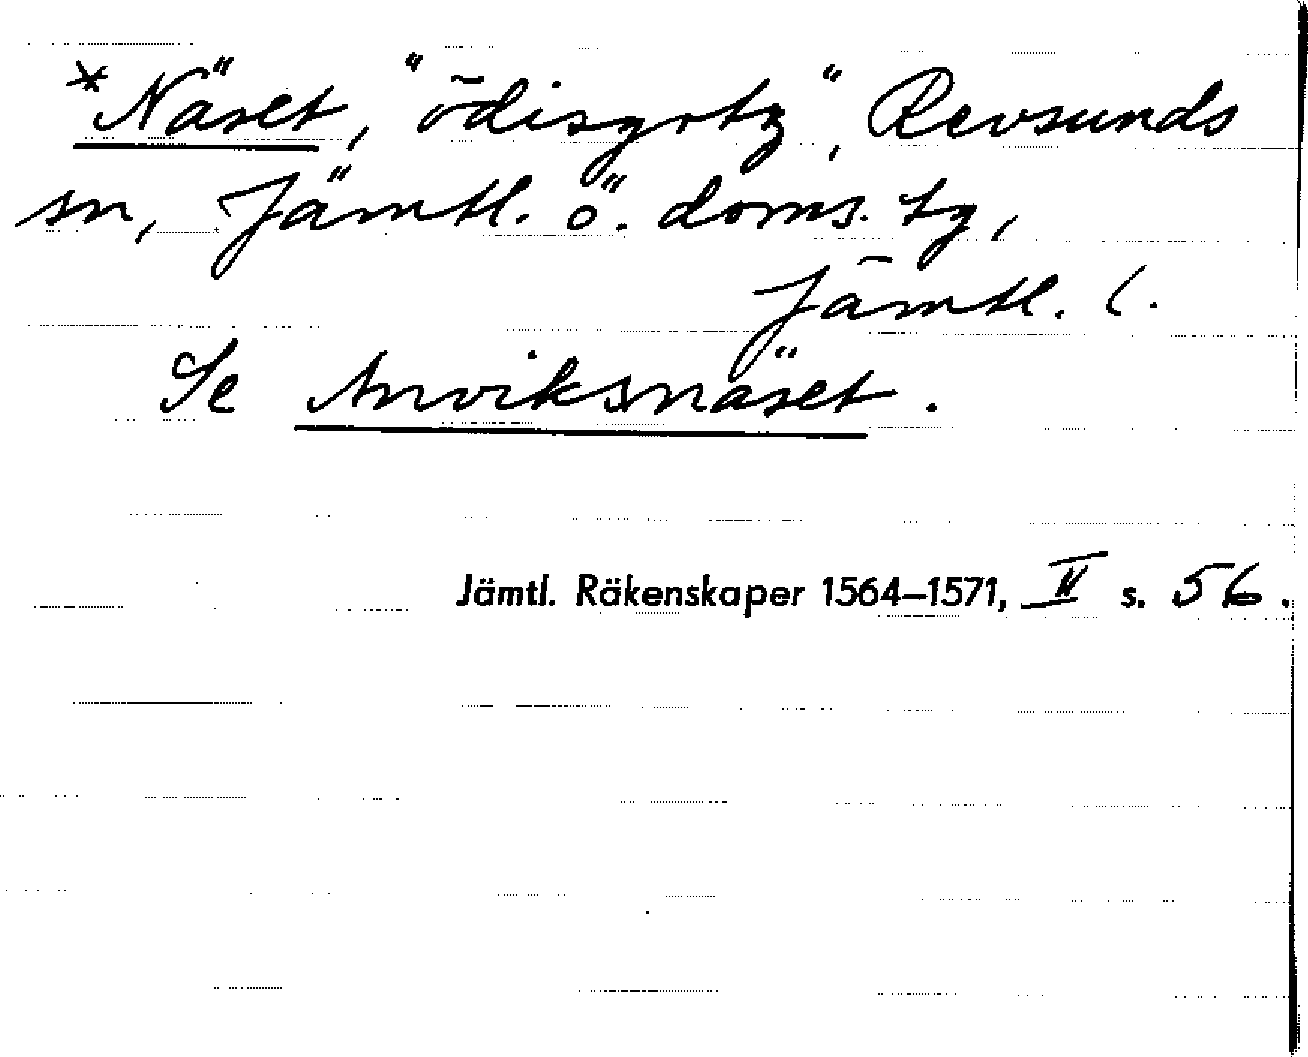 *Näset, "ödisgotz", Revsunds
sn, Jämtl. ö. doms. tg,
Jämtl. l.
Se Anviksnäset.
Jämtl. Räkenskaper 1564–1571, II s. 56.